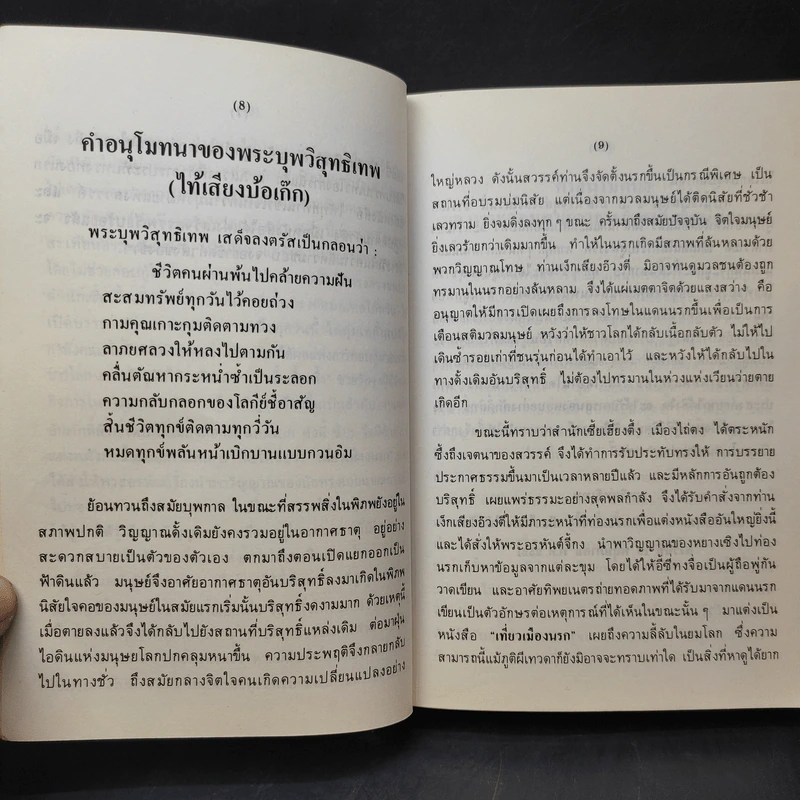 (8)
คำอนุโมทนาของพระบุพวิสุทธิเทพ
(ไท้เสียงบ้อเก๊ก)
พระบุพวิสุทธิเทพ เสด็จลงตรัสเป็นกลอนว่า :
ชีวิตคนผ่านพ้นไปคล้ายความฝัน
สะสมทรัพย์ทุกวันไว้คอยถ่วง
กามคุณเกาะกุมติดตามทวง
ลาภยศลวงให้หลงไปตามกัน
คลื่นตัณหากระหน่ำซ้ำเป็นระลอก
ความกลับกลอกของโลกีย์ชี้อาสัญ
สิ้นชีวิตทุกข์ติดตามทุกวี่วัน
หมดทุกข์พลันหน้าเบิกบานแบบกวนอิม
ย้อนทวนถึงสมัยบุพกาล ในขณะที่สรรพสิ่งในพิภพยังอยู่ใน
สภาพปกติ วิญญาณดั้งเดิมยังคงรวมอยู่ในอากาศธาตุ อยู่อย่าง
สะดวกสบายเป็นตัวของตัวเอง ตกมาถึงตอนเปิดแยกออกเป็น
ฟ้าดินแล้ว มนุษย์จึงอาศัยอากาศธาตุอันบริสุทธิ์ลงมาเกิดในพิภพ
นิสัยใจคอของมนุษย์ในสมัยแรกเริ่มนั้นบริสุทธิ์งดงามมาก ด้วยเหตุนี้
เมื่อตายลงแล้วจึงได้กลับไปยังสถานที่บริสุทธิ์แหล่งเดิม ต่อมาฝุ่น
ไอดินแห่งมนุษยโลกปกคลุมหนาขึ้น ความประพฤติจึงกลายกลับ
ไปในทางชั่ว ถึงสมัยกลางจิตใจคนเกิดความเปลี่ยนแปลงอย่าง
(9)
ใหญ่หลวง ดังนั้นสวรรค์ท่านจึงจัดตั้งนรกขึ้นเป็นกรณีพิเศษ เป็น
สถานที่อบรมบ่มนิสัย แต่เนื่องจากมวลมนุษย์ได้ติดนิสัยที่ชั่วช้า
เลวทราม ยิ่งจมดิ่งลงทุก ๆ ขณะ ครั้นมาถึงสมัยปัจจุบัน จิตใจมนุษย์
ยิ่งเลวร้ายกว่าเดิมมากขึ้น ทำให้ในนรกเกิดมีสภาพที่ล้นหลามด้วย
พวกวิญญาณโทษ ท่านเง็กเสียงอ๊วงตี่ มิอาจทนดูมวลชนต้องถูก
ทรมานในนรกอย่างล้นหลาม จึงได้แผ่เมตตาจิตด้วยแสงสว่าง คือ
อนุญาตให้มีการเปิดเผยถึงการลงโทษในแดนนรกขึ้นเพื่อเป็นการ
เตือนสติมวลมนุษย์ หวังว่าให้ชาวโลกได้กลับเนื้อกลับตัว ไม่ให้ไป
เดินซ้ำรอยเก่าที่ชนรุ่นก่อนได้ทำเอาไว้ และหวังให้ได้กลับไปใน
ทางดั้งเดิมอันบริสุทธิ์ ไม่ต้องไปทรมานในห่วงแห่งเวียนว่ายตาย
เกิดอีก
ขณะนี้ทราบว่าสำนักเซี่ยเฮี้ยงตึ๊ง เมืองไถ่ตง ได้ตระหนัก
ซึ้งถึงเจตนาของสวรรค์ จึงได้ทำการรับประทับทรงให้ การบรรยาย
ประกาศธรรมขึ้นมาเป็นเวลาหลายปีแล้ว และมีหลักการอันถูกต้อง
บริสุทธิ์ เผยแพร่ธรรมะอย่างสุดพลกำลัง จึงได้รับคำสั่งจากท่าน
เง็กเสียงอ๊วงตี่ให้มีภาระหน้าที่ท่องนรกเพื่อแต่งหนังสืออันใหญ่ยิ่งนี้
และได้สั่งให้พระอรหันต์จี้กง นำพาวิญญาณของหยางเซิงไปท่อง
นรกเก็บหาข้อมูลจากแต่ละขุม โดยได้ให้อี้ซี่ทงจื่อเป็นผู้ถือพู่กัน
วาดเขียน และอาศัยทิพยเนตรถ่ายทอดภาพที่ได้รับมาจากแดนนรก
เขียนเป็นตัวอักษรต่อเหตุการณ์ที่ได้เห็นในขณะนั้น ๆ มาแต่งเป็น
หนังสือ “เที่ยวเมืองนรก” เผยถึงความลี้ลับในยมโลก ซึ่งความ
สามารถนี้แม้ภูติผีเทวดาก็ยังมิอาจจะทราบเท่าใด เป็นสิ่งที่หาดูได้ยาก